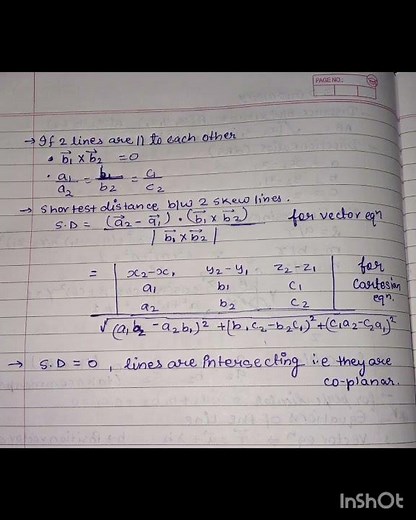 PAGE NO.:
→ If 2 lines are || to each other
• b₁⃗ × b₂⃗ = 0
• a₁/a₂ = b₁/b₂ = c₁/c₂
→ Shortest distance b/w 2 skew lines.
S.D = (a₂⃗ - a₁⃗) • (b₁⃗ × b₂⃗) / |b₁⃗ × b₂⃗| for vector eqn
= | x₂-x₁ y₂-y₁ z₂-z₁ | for
a₁ b₁ c₁ Cartesian
a₂ b₂ c₂ eqn.
√(a₁b₂ - a₂b₁)² + (b₁c₂ - b₂c₁)² + (c₁a₂ - c₂a₁)²
→ S.D = 0, lines are intersecting i.e they are
co-planar.
InShOt